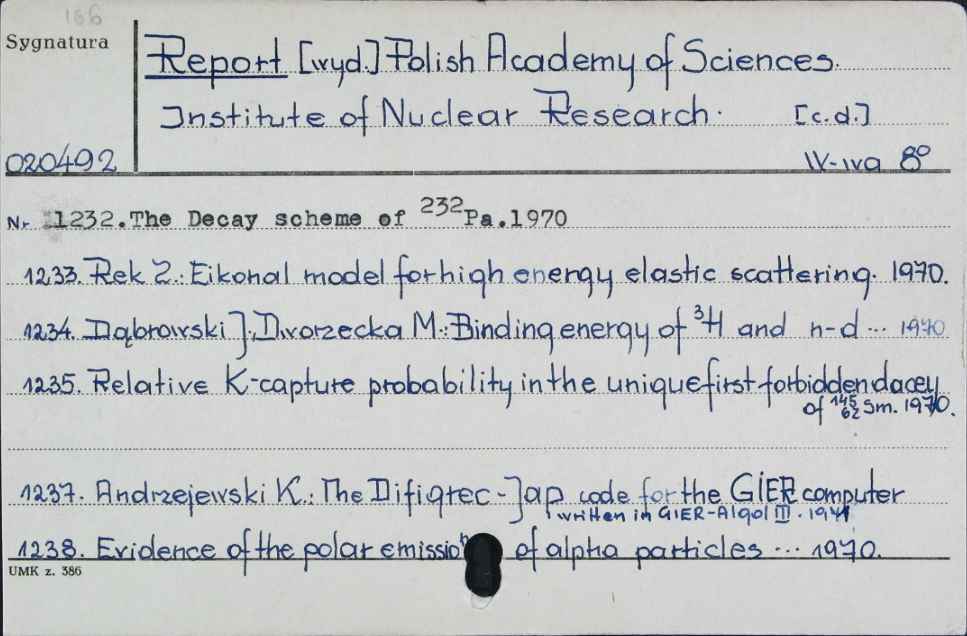 186
Sygnatura
Report [wyd.] Polish Academy of Sciences.
Institute of Nuclear Research. [c.d.]
020492
IV-iva 8º
Nr 1232. The Decay scheme of ²³²Pa. 1970
1233. Rek Z.: Eikonal model for high energy elastic scattering. 1970.
1234. Dąbrowski J., Dworzecka M.: Binding energy of ³H and n-d ... 1970
1235. Relative K-capture probability in the unique first forbidden dacey
of ¹⁴⁵₆₂Sm. 1970.
1237. Andrzejewski K.: The Difiqrec-Jap code for the GIER computer
written in GIER-Algol III. 1971
1238. Evidence of the polar emission of alpha particles ... 1970.
UMK z. 386